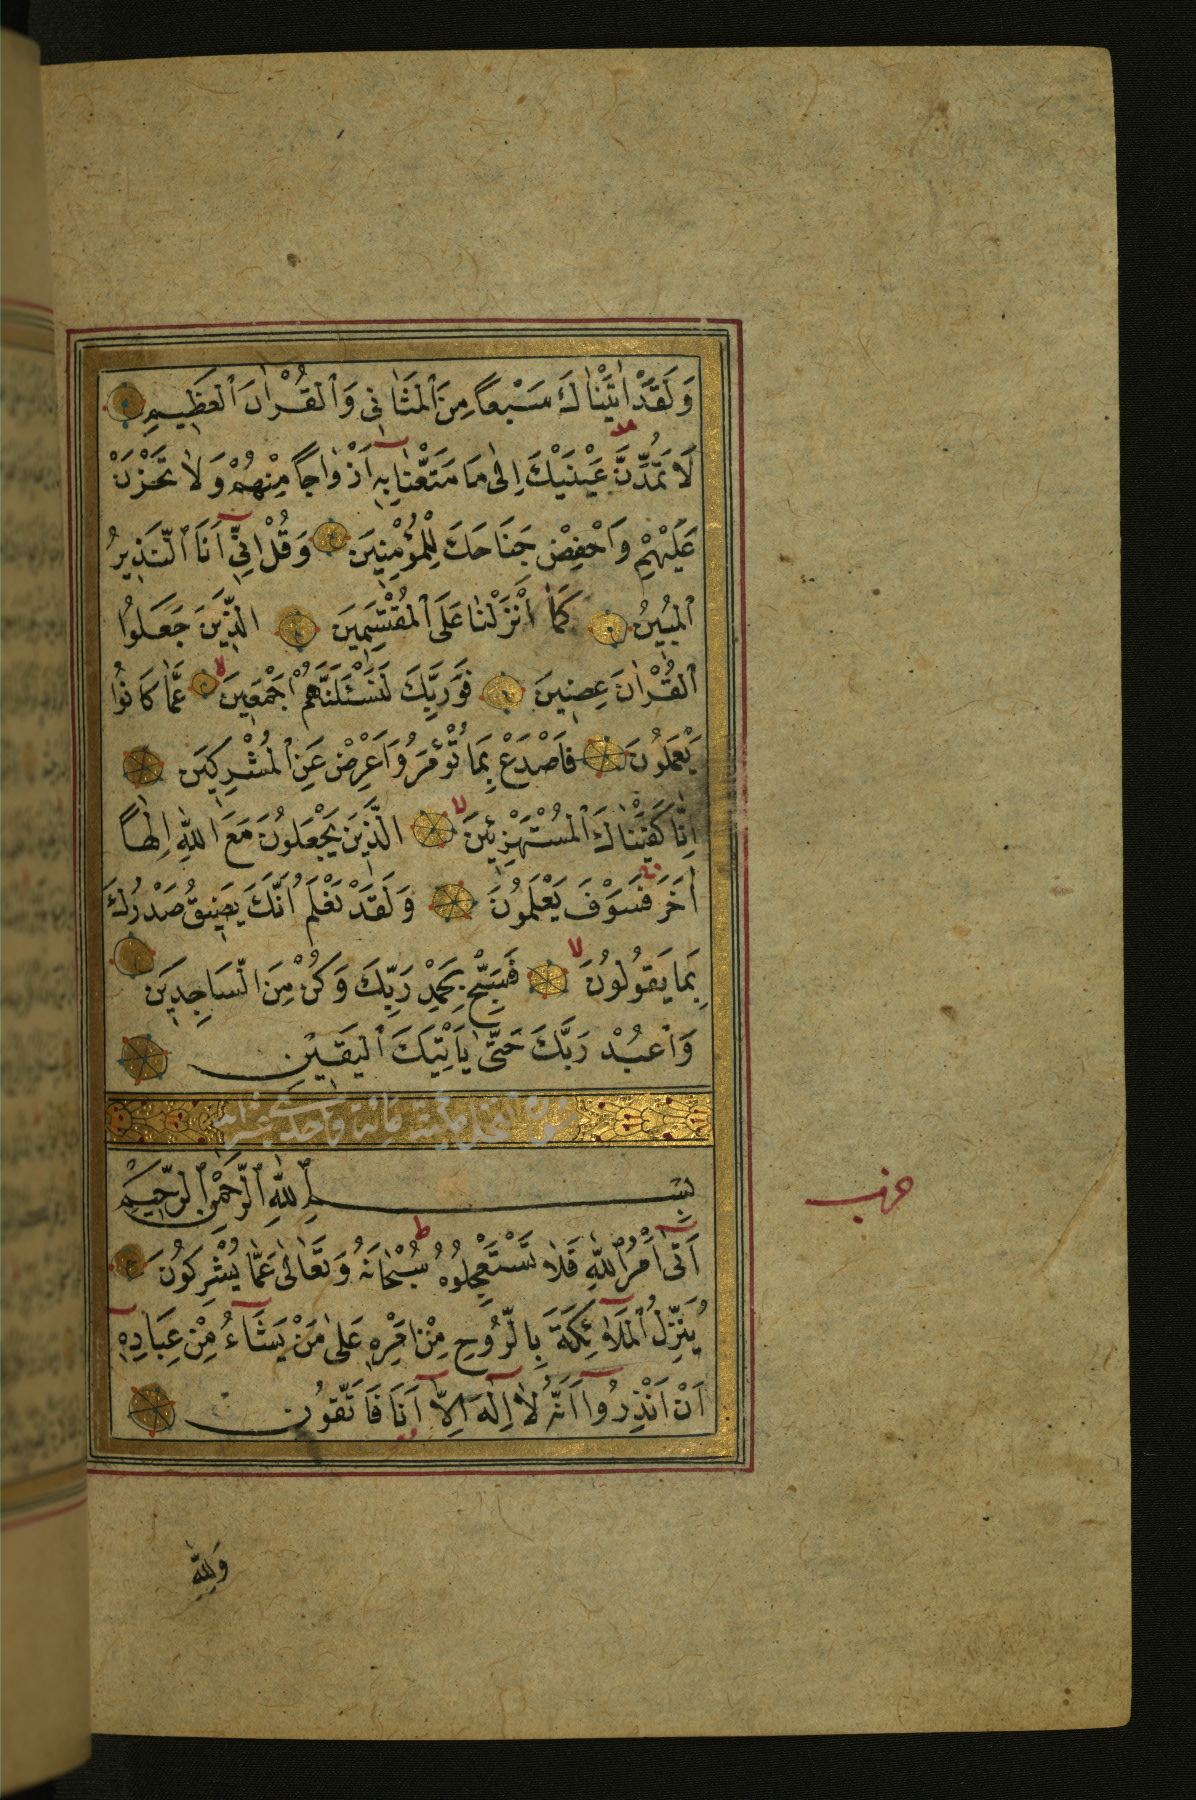 وَلَقَدْ اٰتَيْنَاكَ سَبْعاً مِنَ ٱلْمَثَانِى وَٱلْقُرْاٰنَ ٱلْعَظِيمِ
لَا تَمُدَّنَّ عَيْنَيْكَ اِلٰى مَا مَتَّعْنَا بِهِ اَزْوَاجاً مِنْهُمْ وَلَا تَحْزَنْ
عَلَيْهِمْ وَاَخْفِضْ جَنَاحَكَ لِلْمُؤْمِنِينَ وَقُلْ اِنِّى اَنَا ٱلنَّذِيرُ
ٱلْمُبِينُ كَمَا اَنْزَلْنَا عَلَى ٱلْمُقْتَسِمِينَ الَّذِينَ جَعَلُوا
ٱلْقُرْاٰنَ عِضِينَ فَوَرَبِّكَ لَنَسْـَٔلَنَّهُمْ اَجْمَعِينَ عَمَّا كَانُوا
يَعْمَلُونَ فَاَصْدَعْ بِمَا تُؤْمَرُ وَاَعْرِضْ عَنِ ٱلْمُشْرِكِينَ
اِنَّا كَفَيْنَاكَ ٱلْمُسْتَهْزِئِينَ الَّذِينَ يَجْعَلُونَ مَعَ اللّٰهِ اِلٰهاً
اٰخَرَ فَسَوْفَ يَعْلَمُونَ وَلَقَدْ نَعْلَمُ اَنَّكَ يَضِيقُ صَدْرُكَ
بِمَا يَقُولُونَ فَسَبِّحْ بِحَمْدِ رَبِّكَ وَكُنْ مِنَ السَّاجِدِينَ
وَاَعْبُدْ رَبَّكَ حَتّٰى يَاْتِيَكَ ٱلْيَقِينُ
سورة النحل مكية مائة
بِسْمِ ٱللّٰهِ ٱلرَّحْمٰنِ ٱلرَّحِيمِ
حزب
اَتٰى اَمْرُ ٱللّٰهِ فَلَا تَسْتَعْجِلُوهُ سُبْحَانَهُ وَتَعَالٰى عَمَّا يُشْرِكُونَ
يُنَزِّلُ ٱلْمَلَاۤئِكَةَ بِالرُّوحِ مِنْ اَمْرِهِ عَلٰى مَنْ يَشَاۤءُ مِنْ عِبَادِهِ
اَنْ اَنْذِرُوا اَنَّهُ لَا اِلٰهَ اِلَّا اَنَا فَاتَّقُونِ
وَلِلّٰهِ